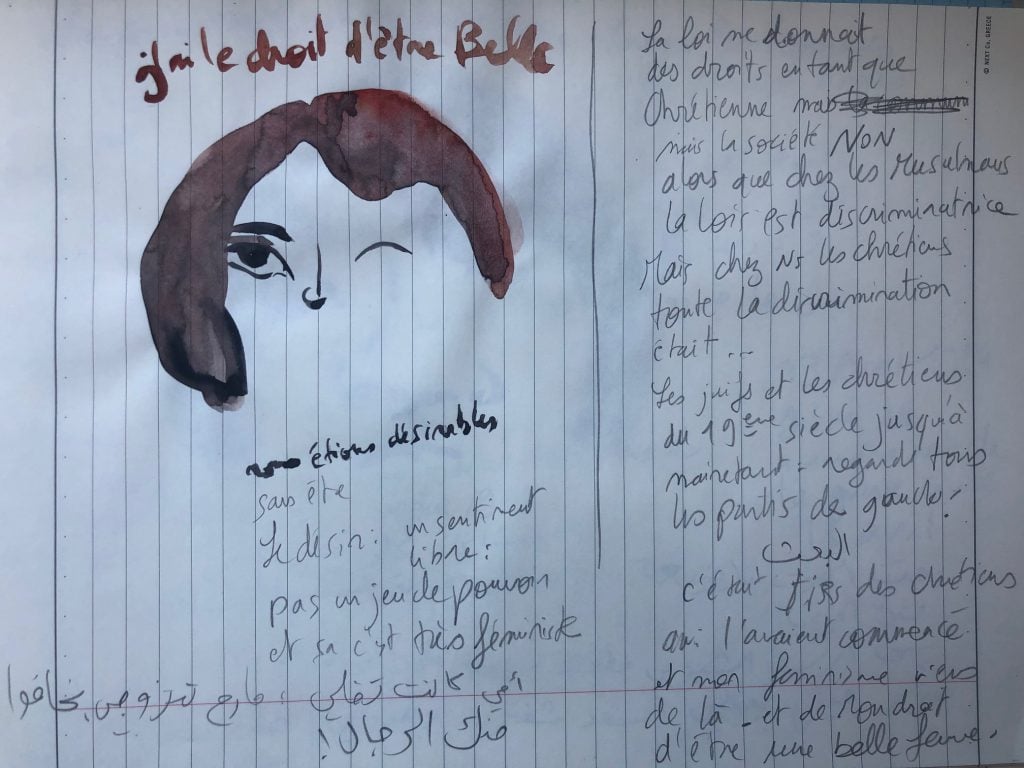 j'ai le droit d'être Belle
nous étions désirables
sans être
Le désir : un sentiment
libre :
pas un jeu de pouvoir
et sa c'est très féministe
أمي كانت تقلي : مارح تتزوجي بخافوا
منك الرجال !
La loi me donnait
des droits en tant que
Chrétienne mais
mais la société NON
alors que chez les Musulmans
la loi est discriminatrice
Mais chez NS les chrétiens
toute la discrimination
était ...
Les juifs et les chrétiens
du 19ème siècle jusqu'à
maintenant : regarde tous
les partis de gauche !
البعث
c'était des chrétiens
qui l'avaient commencé
et mon féminisme viens
de là _ et de mon droit
d'être une belle femme.
© NEXT Co. GREECE